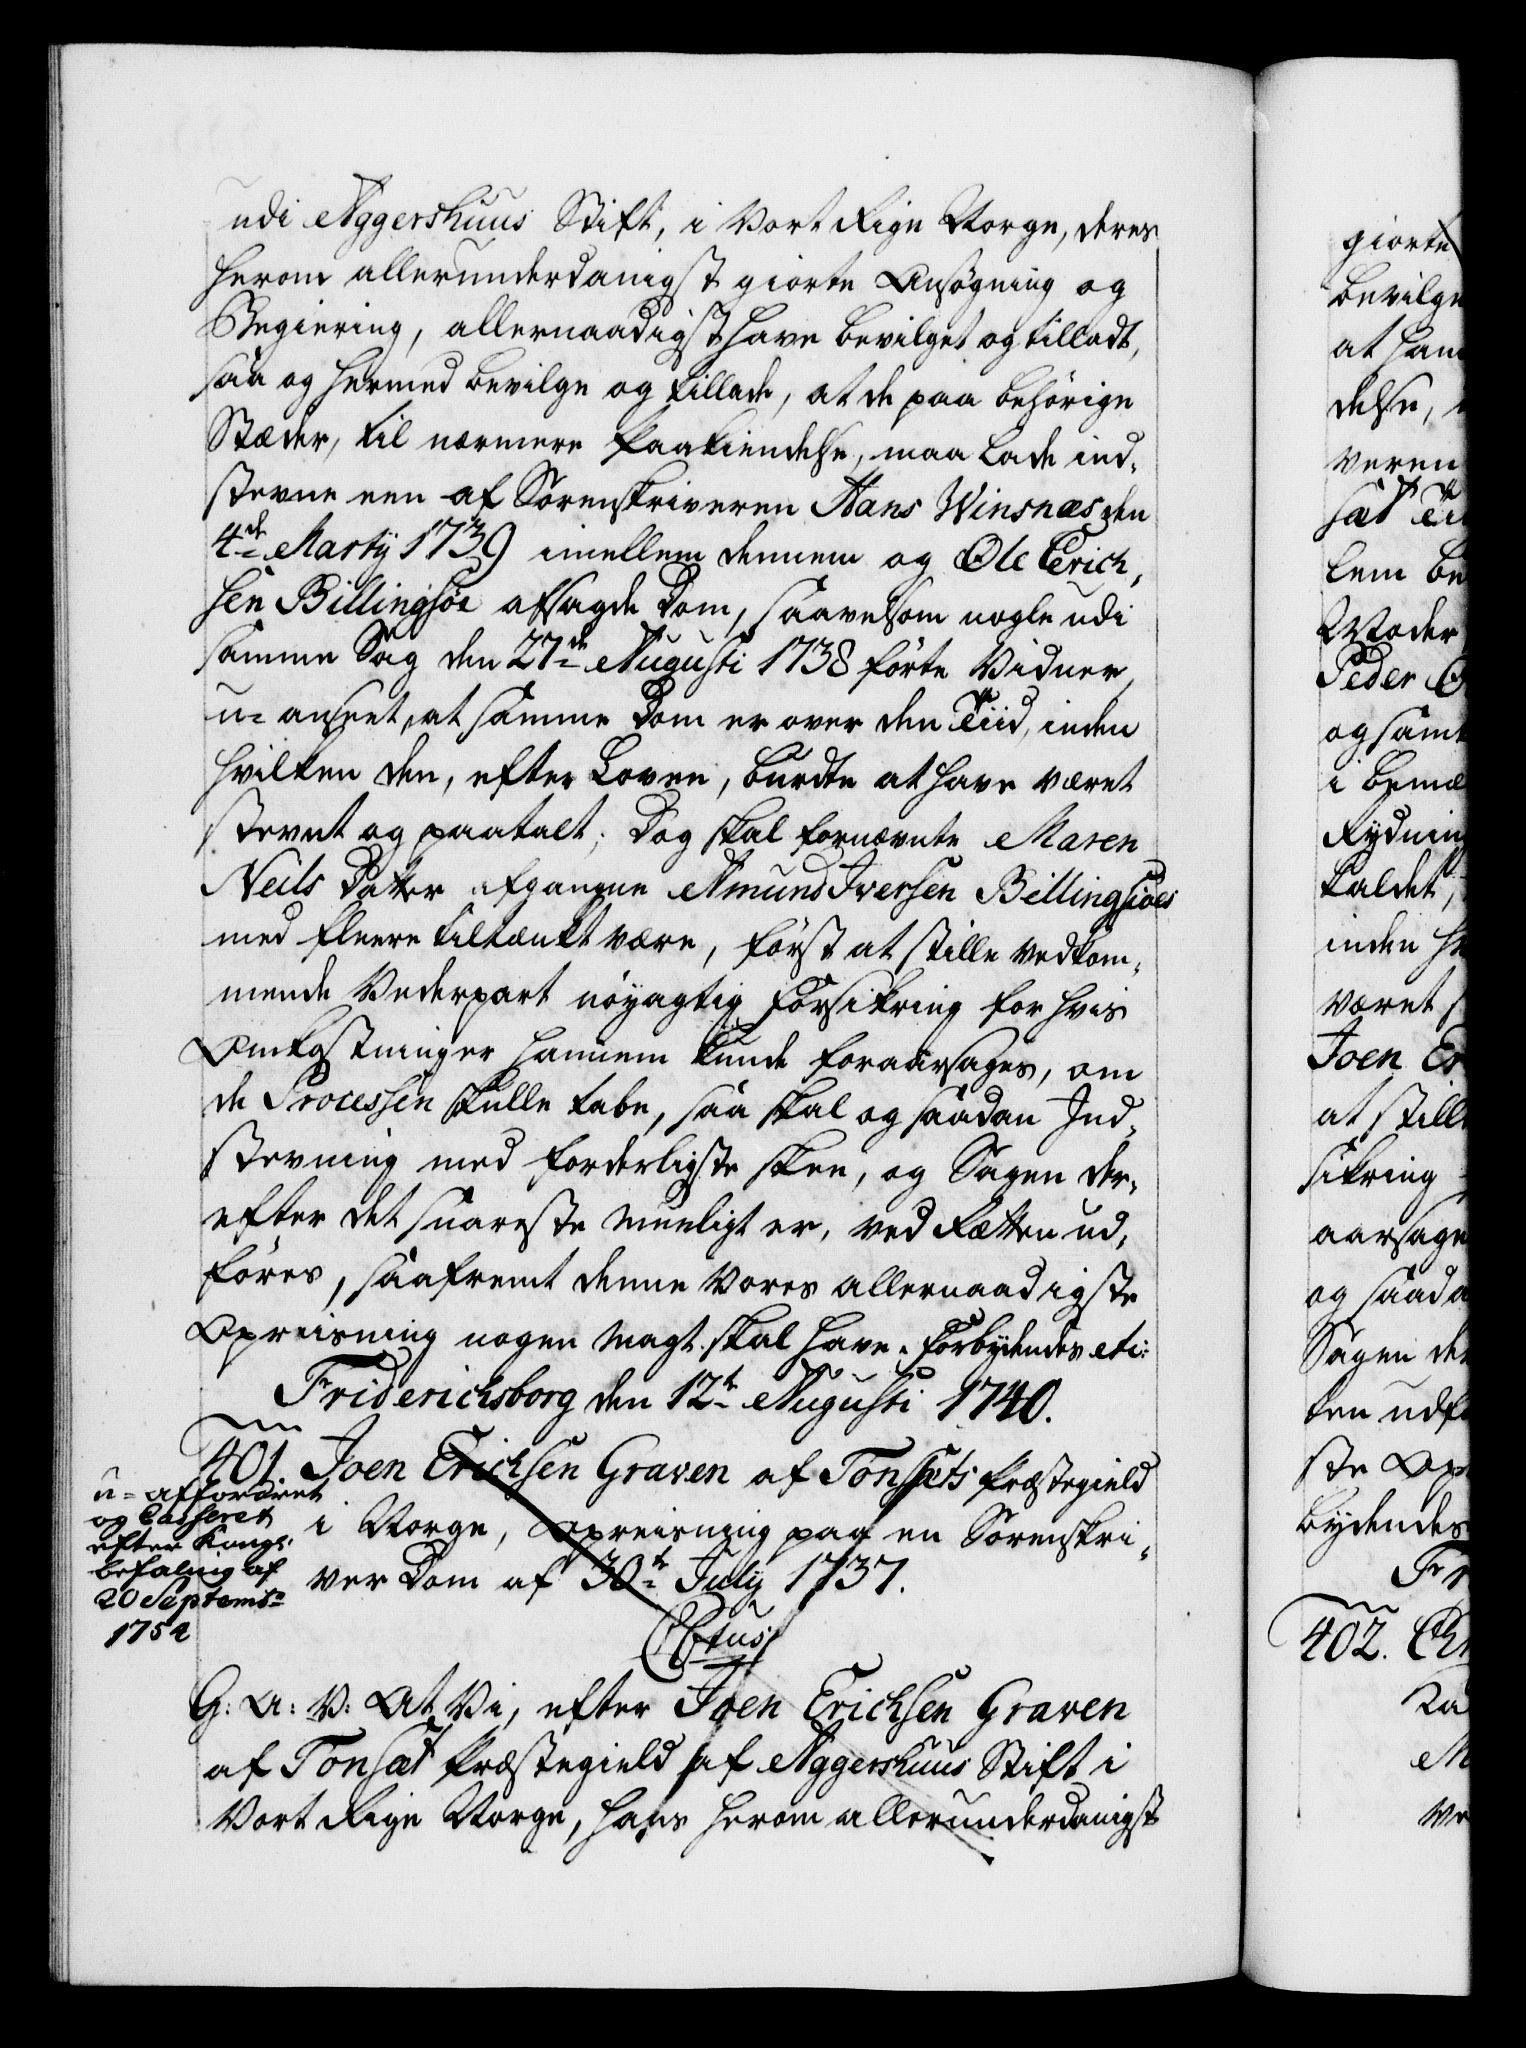 udi Aggershuus Stift, i Vort Rige Norge, deres
herom allerunderdanigst giorte Ansøgning og
Begiering, allernaadigst have bevilget og tilladt,
saa og hermed bevilge og tillade, at de paa behørige
Stæder, til nærmere Paakiendelse, maa lade ind-
stevne een af Sorenskriveren Hans Winsnæs den
4de Martij 1739 imellem dennem og Ole Erich,
sen Billingsøe afsagde Dom, saavelsom nogle udi
samme Sag den 27de Augusti 1738 førte Vidner,
u- anseet, at samme Dom er over den Tiid, inden
hvilken den, efter Loven, burdte at have været
stevnt og paatalt; Dog skal fornævnte Maren
Neils Datter afgangne Amund Iversen Billingsøes
med fleere tiltænkt være, først at stille vedkom-
mende Vederpart nøyagtig Forsikring for hvis
Omkostninger hannem kunde foraarsages, om
de Processen skulle tabe, saa skal og saadan Ind-
stevning med forderligste skee, og Sagen der-
efter det snareste mueligt er, ved Rætten ud,
føres, saafremt denne Vores allernaadigste
Opreisning nogen Magt skal have. Forbydendes etc:
Friderichsborg den 12te Augusti 1740.
401. Joen Erichsen Graven af Tonsæts Præstegield
i Norge, Opreisning paa en Sorenskri-
ver Dom af 30te July 1737.
u- affordret
og Casseret
efter Kongs:
befaling af
20 Septembr
1752
G: A: V: At Vi, efter Joen Erichsen Graven
af Tonsæt Præstegield af Aggershuus Stift i
Vort Rige Norge, hans herom allerunderdanigst
giorte
bevilge
at han
delse,
veren
sæt
lem
Peder
og samt
i
Rydning
kaldet,
inden
været
Joen Er
at stille
sikring
aarsage
og saada
Sagen der
ten udf
ste Op
bydendes
Fr
402.